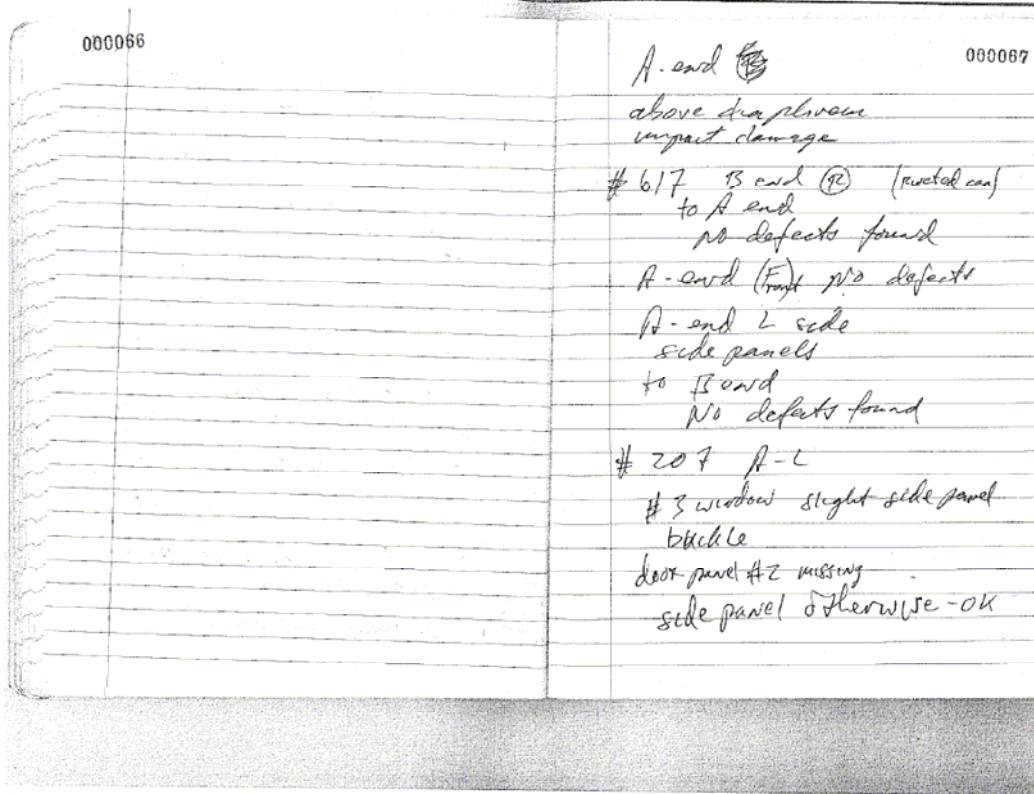 000066
000067
A-end
above diaphram
impact damage
# 617 B end R (riveted car)
to A end
No defects found
A-end (Front) No defects
A-end L side
side panels
to B end
No defects found
# 207 A-L
#3 window slight side panel
buckle
door panel #2 missing
side panel otherwise-OK